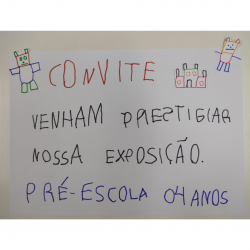 CONVITE
VENHAM PRESTIGIAR
NOSSA EXPOSIÇÃO.
PRÉ-ESCOLA 04 ANOS